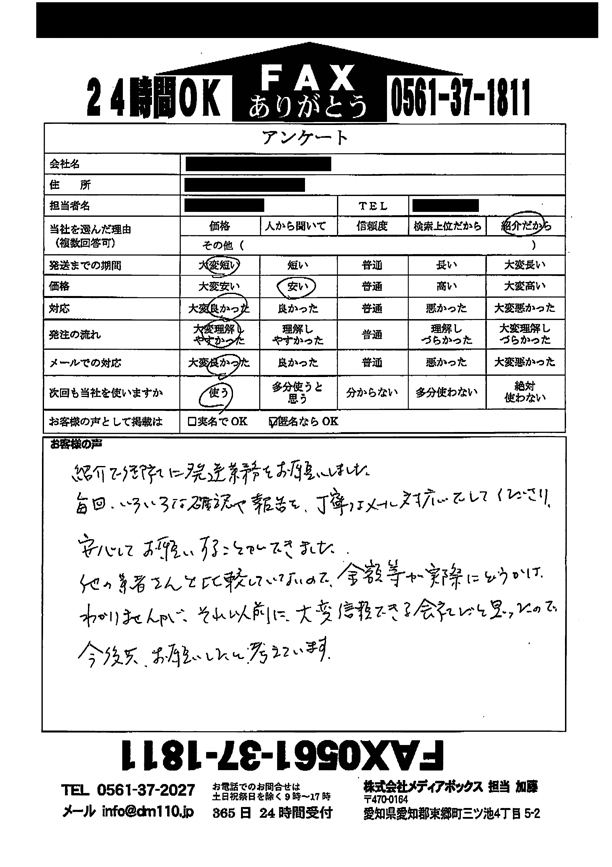 24時間OK FAX ありがとう 0561-37-1811
アンケート
会社名
住 所
担当者名 TEL
当社を選んだ理由 価格 人から聞いて 信頼度 検索上位だから 紹介だから
(複数回答可) その他 ( )
発送までの期間 大変短い 短い 普通 長い 大変長い
価格 大変安い 安い 普通 高い 大変高い
対応 大変良かった 良かった 普通 悪かった 大変悪かった
発注の流れ 大変理解しやすかった 理解しやすかった 普通 理解しづらかった 大変理解しづらかった
メールでの対応 大変良かった 良かった 普通 悪かった 大変悪かった
次回も当社を使いますか 使う 多分使うと思う 分からない 多分使わない 絶対使わない
お客様の声として掲載は □実名でOK ☑匿名ならOK
お客様の声
紹介で 発送業務をお願いしました。
毎回、いろいろな確認や報告を、丁寧なメール対応をしてくださり、
安心してお願いすることができました。
他の業者さんと比較していないので、金額等が実際にどうかは、
わかりませんが、それ以前に、大変信頼できる会社だと思ったので、
今後共、お願いしたいと考えています。
FAX0561-37-1811
TEL 0561-37-2027 お電話でのお問合せは 株式会社メディアボックス 担当 加藤
土日祝祭日を除く9時〜17時 〒470-0164
メール info@dm110.jp 365日 24時間受付 愛知県愛知郡東郷町三ツ池4丁目5-2